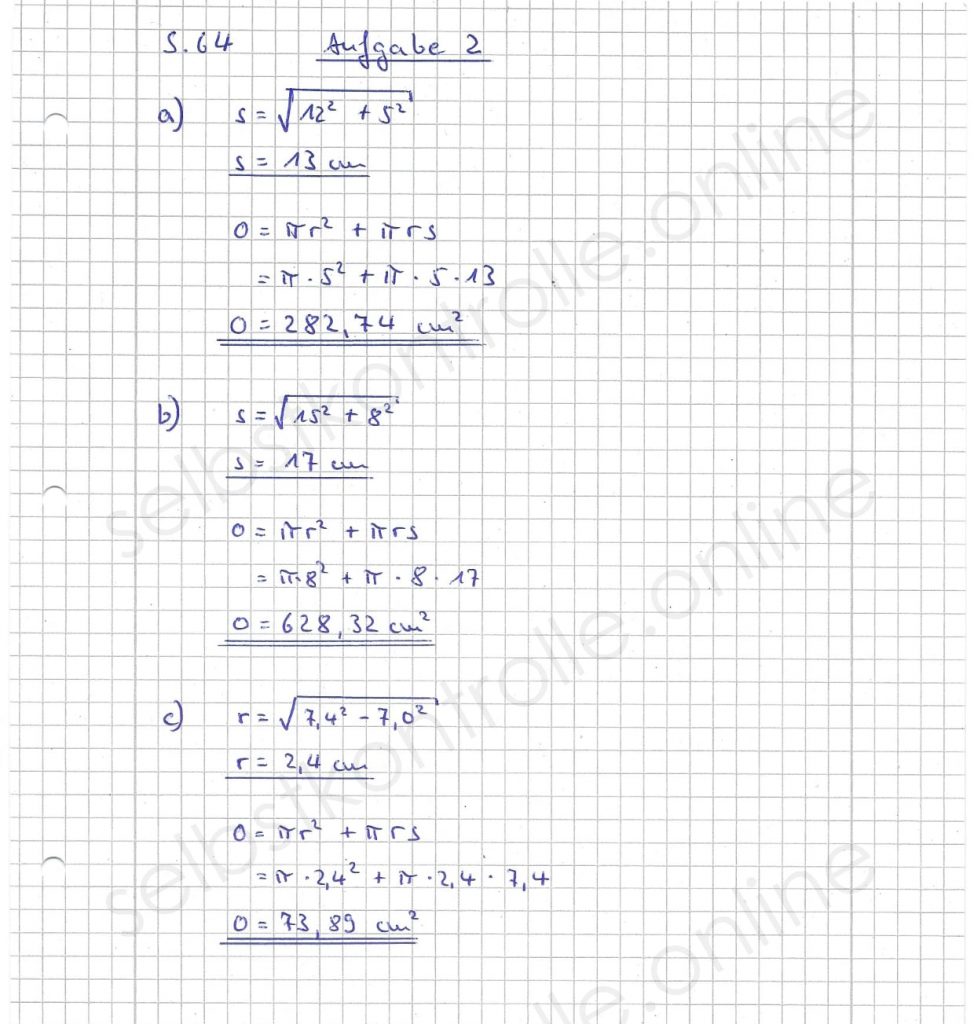 S. 64 Aufgabe 2
a) s = √(12² + 5²)
s = 13 cm
O = πr² + πrs
= π · 5² + π · 5 · 13
O = 282,74 cm²
b) s = √(15² + 8²)
s = 17 cm
O = πr² + πrs
= π·8² + π · 8 · 17
O = 628,32 cm²
c) r = √(7,4² - 7,0²)
r = 2,4 cm
O = πr² + πrs
= π · 2,4² + π · 2,4 · 7,4
O = 73,89 cm²
selbstkontrolle.online
selbstkontrolle.online
selbstkontrolle.online